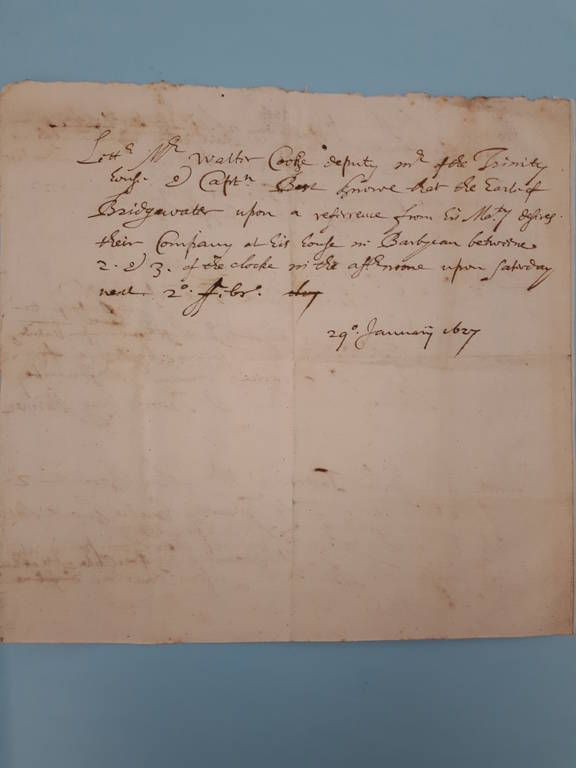 Lett Mr. Walter Cooke deputy mr. of the Trinity
house & Captn Best knowe that the Earle of
Bridgewater upon a referrence from his Maty desires
their Company at his house in Barbycan betweene
2. & 3. of the clocke in the afternoone upon Saturday
next 2o. Febr.
29o. January 1627